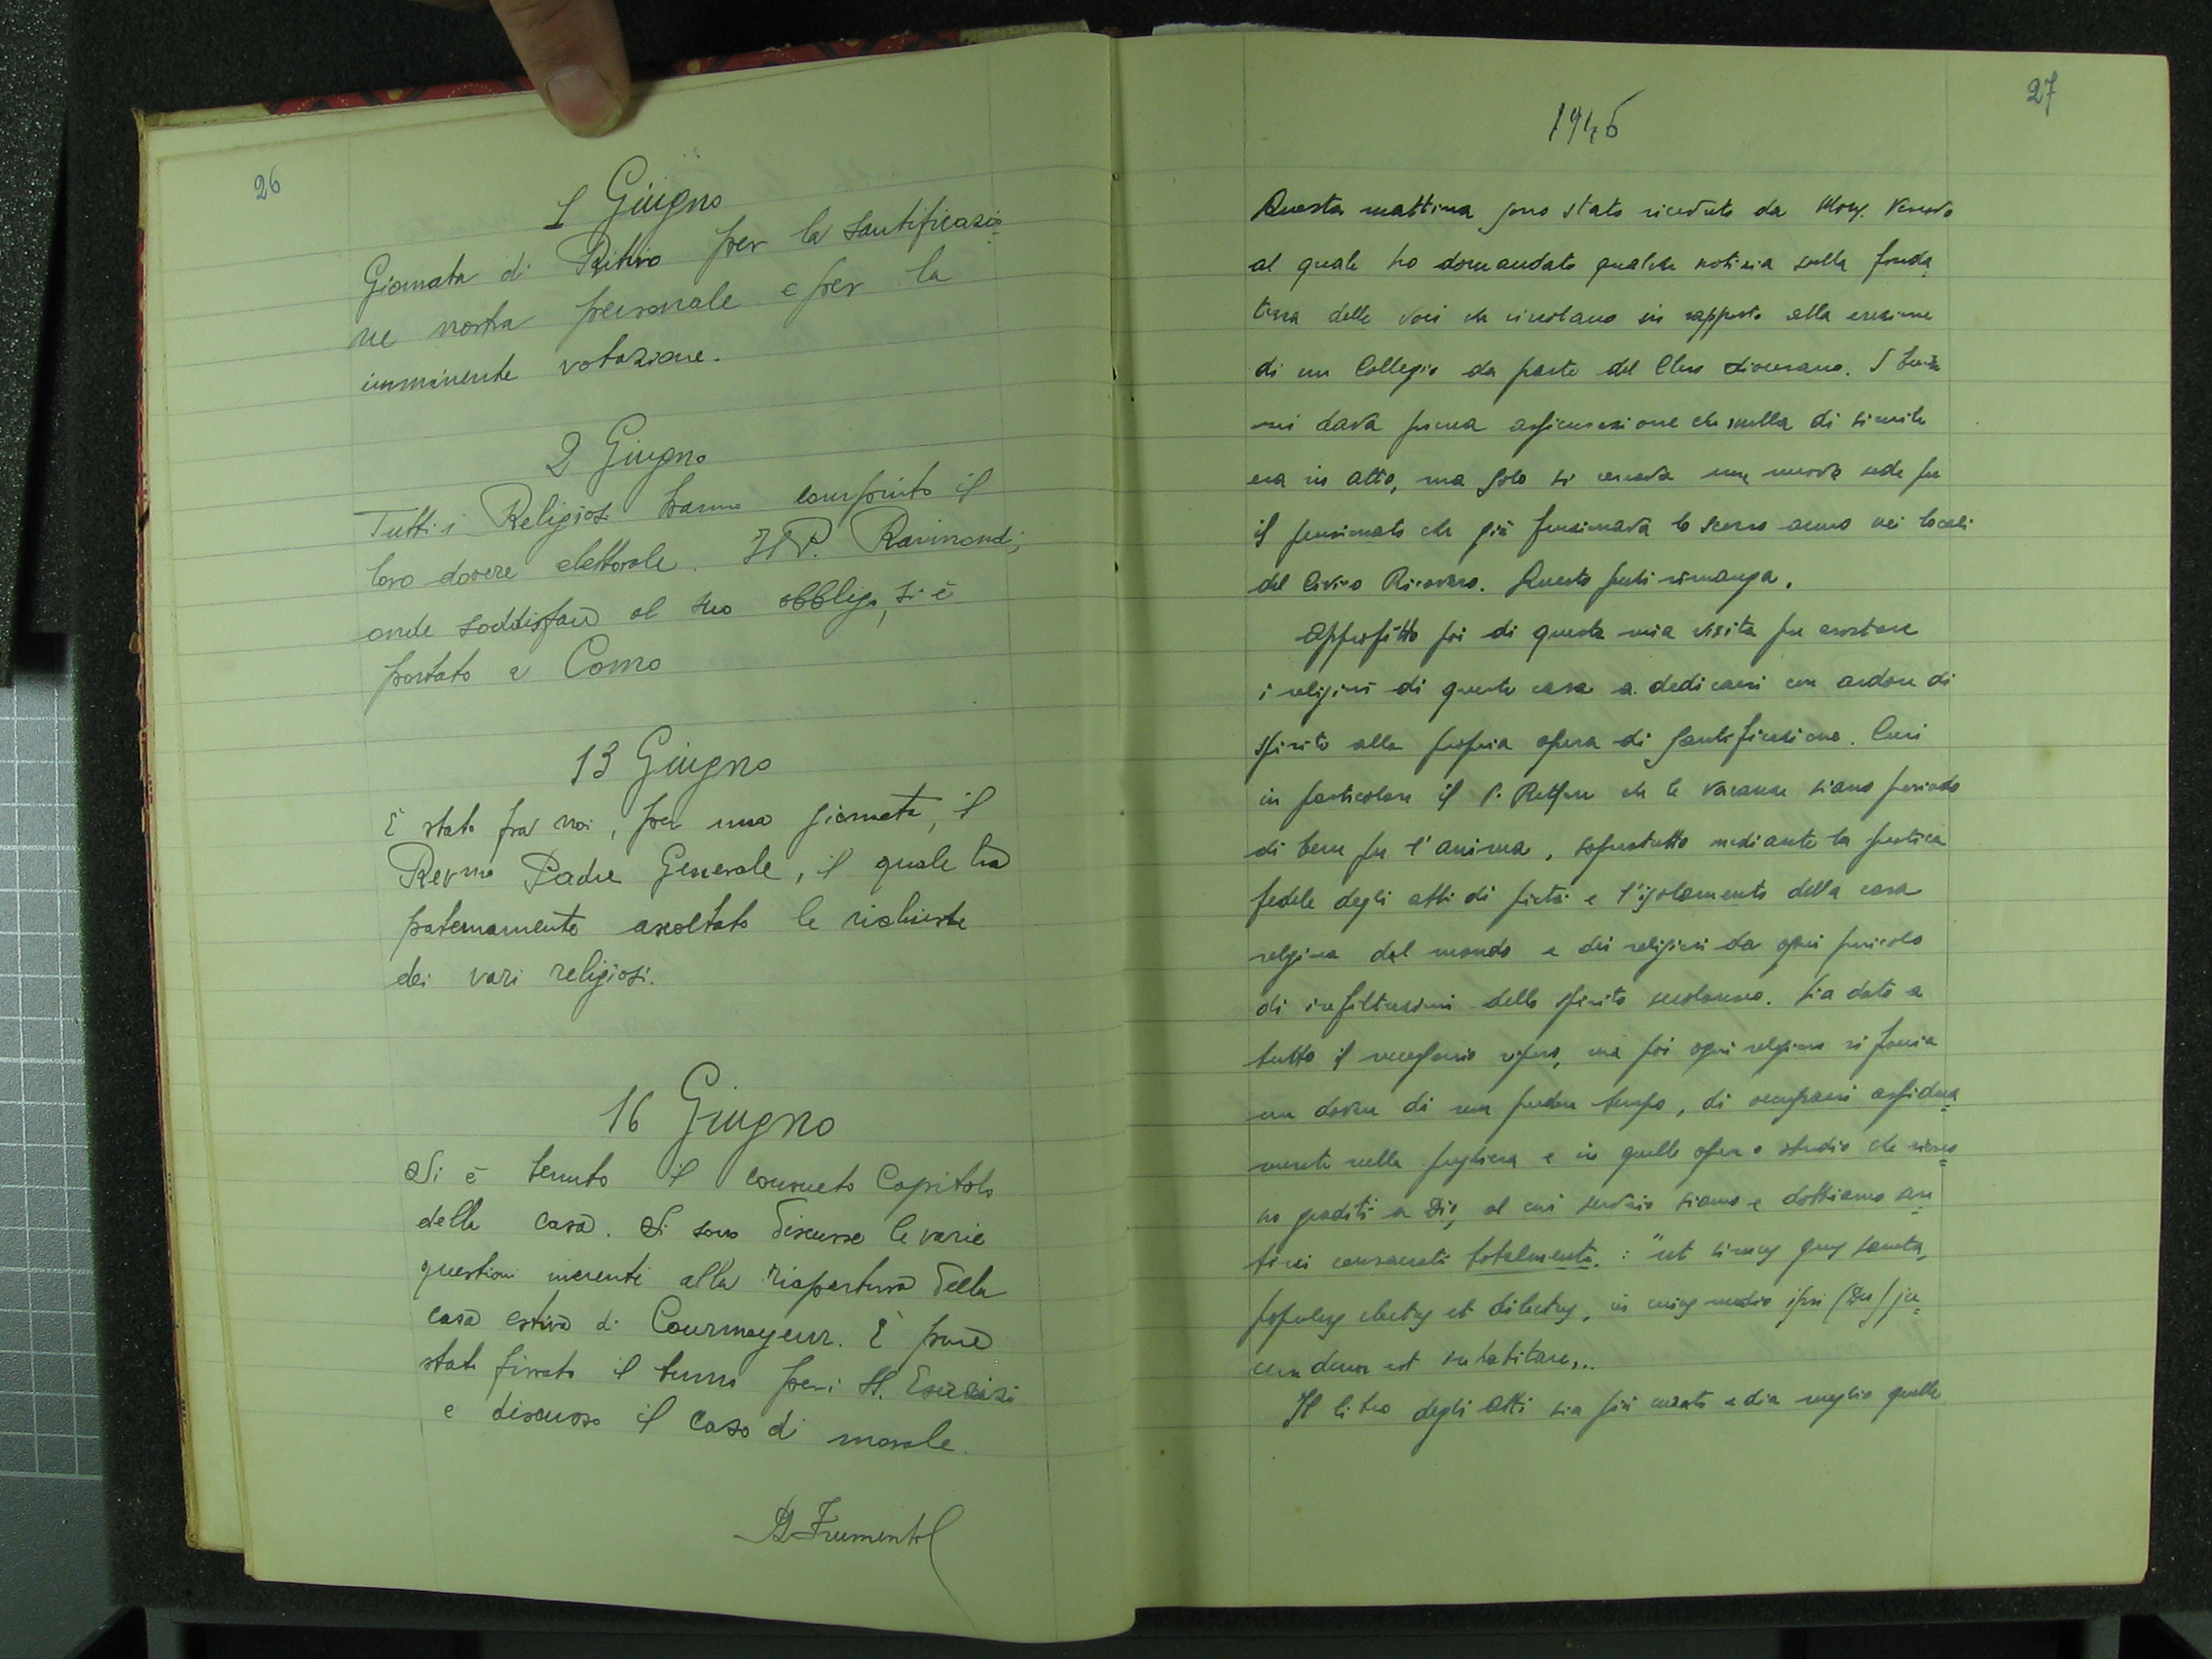 26
1 Giugno
Giornata di Ritiro per la santificazio-
ne nostra personale e per la
imminente votazione.
2 Giugno
Tutti i Religiosi hanno compiuto il
loro dovere elettorale. Il P. Raimondi,
onde soddisfare al suo obbligo, si è
portato a Como
13 Giugno
È stato fra noi, per una giornata, il
Rev.mo Padre Generale, il quale ha
paternamente ascoltato le richieste
dei vari religiosi.
16 Giugno
Si è tenuto il consueto Capitolo
della casa. Si sono discusse le varie
questioni inerenti alla riapertura della
casa estiva di Courmayeur. È pure
stato fissato il turno per i SS. Esercizi
e discusso il caso di morale.
Frumento
27
1946
Questa mattina sono stato ricevuto da Mons. Vescovo
al quale ho domandato qualche notizia sulla fonda-
tezza delle voci che circolano in rapporto alla erezione
di un Collegio da parte del Clero diocesano. S.
mi dava piena assicurazione che nulla di simile
era in atto, ma solo si cercava una nuova sede per
il pensionato che già funzionava lo scorso anno nei locali
del Civico Ricovero. Questo perché rimanga.
Approfitto poi di questa mia visita per esortare
i religiosi di questa casa a dedicarsi con ardore di
spirito alla propria opera di santificazione. Curi
in particolare il P. Rettore che le vacanze siano periodo
di bene per l'anima, soprattutto mediante la pratica
fedele degli atti di pietà e l'isolamento della casa
religiosa dal mondo e dei religiosi da ogni pericolo
di infiltrazioni dello spirito secolaresco. Sia dato a
tutti il necessario riposo, ma poi ogni religioso si faccia
un dovere di non perdere tempo, di occuparsi assidua-
mente nella preghiera e in quelle opere o studio che riesco-
no graditi a Dio, al cui servizio siamo e dobbiamo sen-
tirci consacrati totalmente.: "ut simus gens sancta,
populus electus et dilectus, in cuius medio ipsi (Deo) ju-
cundum est inhabitare...
Il libro degli Atti sia più curato e dia meglio quella